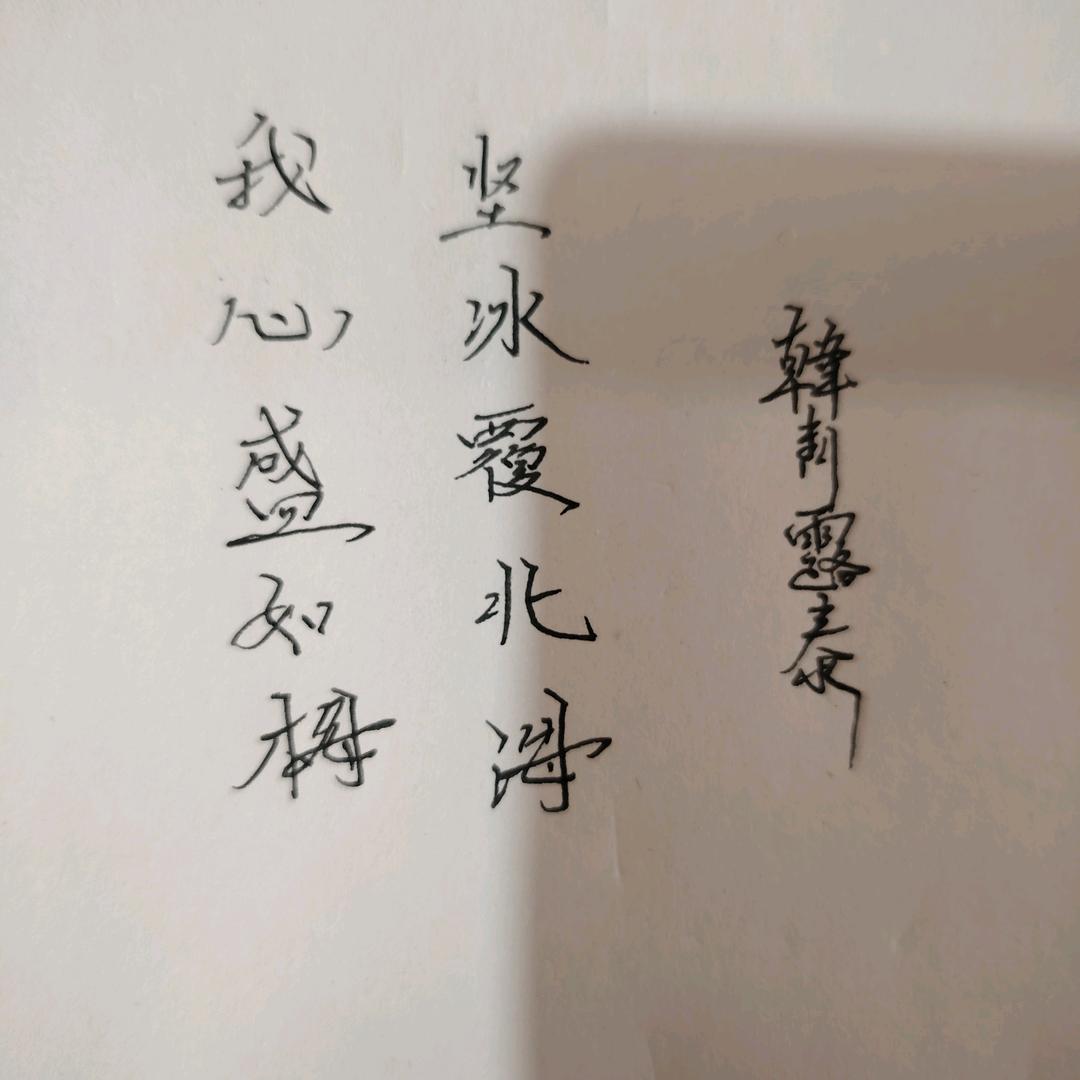 韓露
坚冰覆北海
我心盛如梅